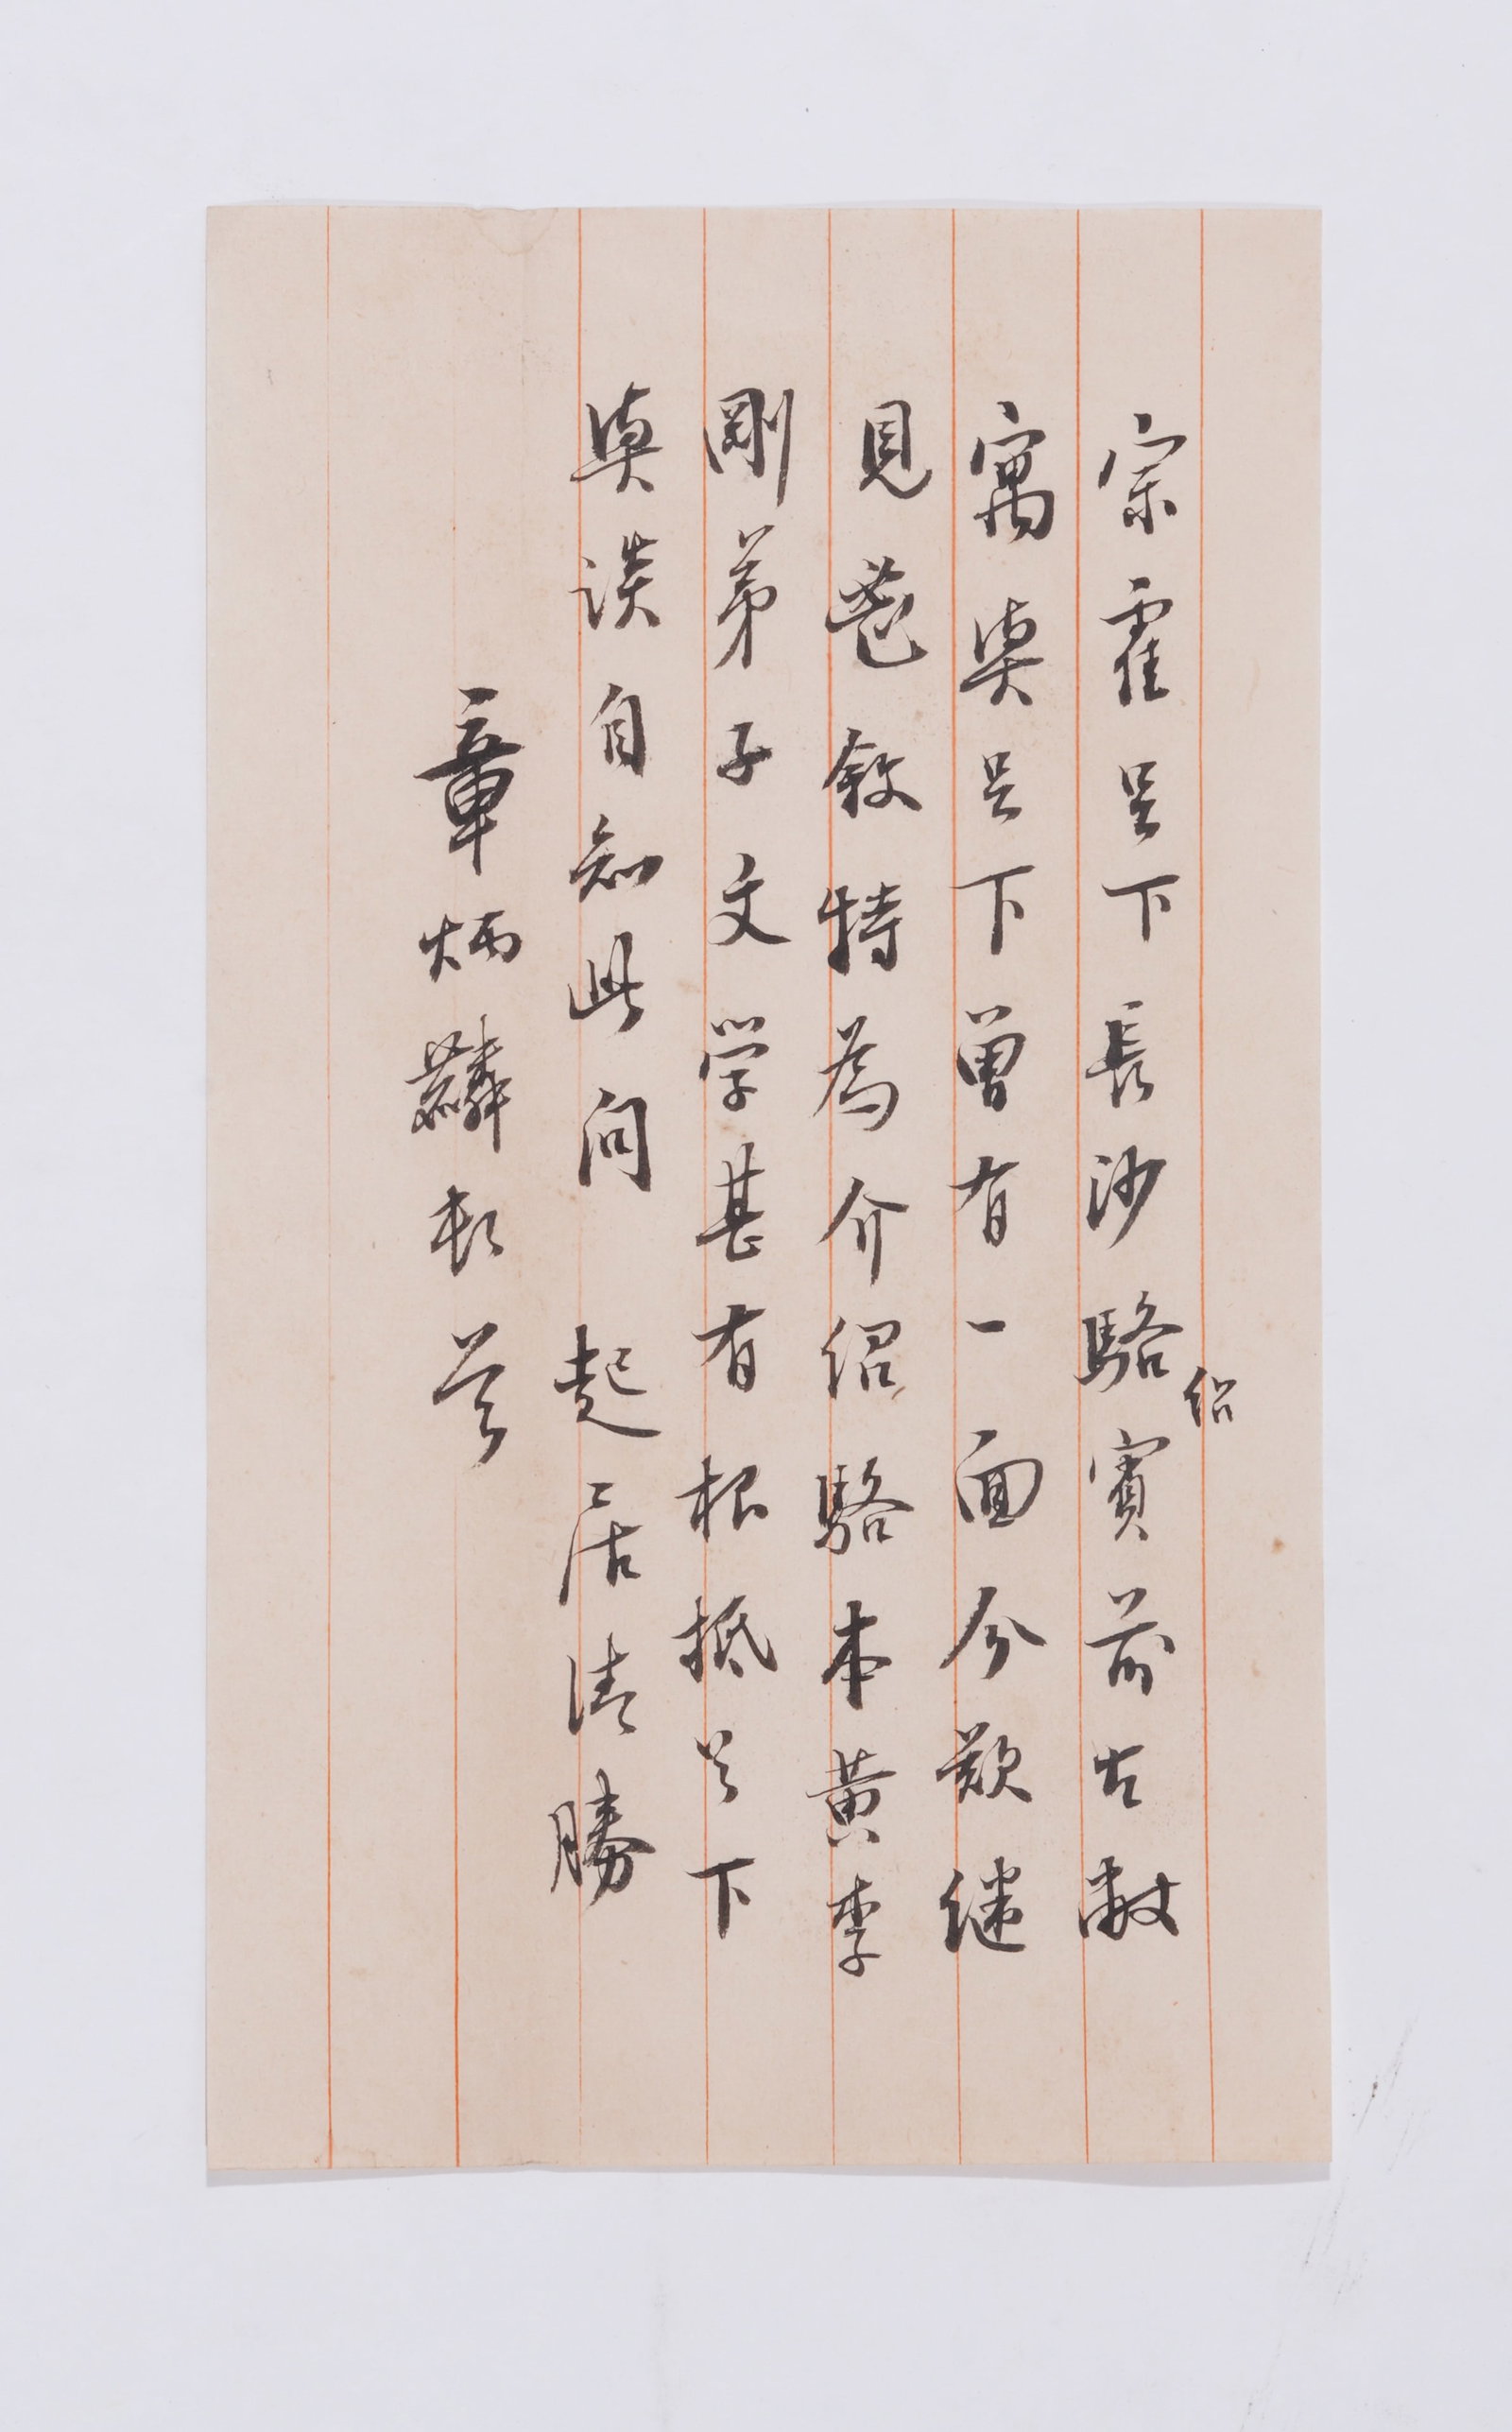 宗霍足下長沙駱紹賓前在敝
寓與足下曾有一面今欲継
見鬯敘特為介紹駱本黃季
剛弟子文学甚有根抵足下
與談自知此問 起居清勝
章炳麟頓首